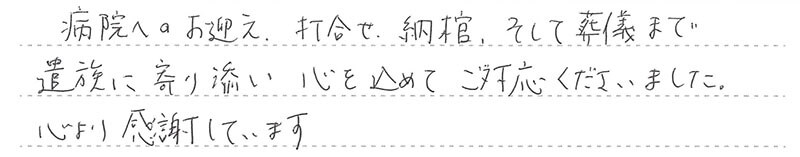 病院へのお迎え、打合せ、納棺、そして葬儀まで
遺族に寄り添い心を込めてご対応くださいました。
心より感謝しています